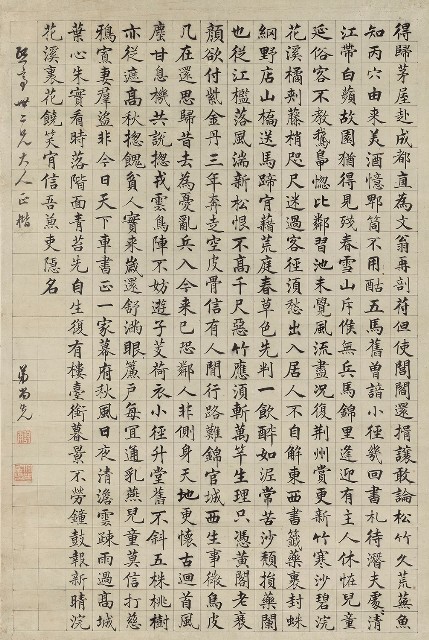 得歸茅屋赴成都直為文翁再剖符但使閭閻還揖讓敢論松竹久荒蕪魚
知丙穴由來美酒憶郫筒不用酤五馬舊曾諳小徑幾回書札待潛夫處〻清
江帶白蘋故園猶得見殘春雪山斥候無兵馬錦里逢迎有主人休怪兒童
延俗客不教鵞鳥惱比鄰習池未覺風流盡況復荆州賞更新竹寒沙碧浣
花溪橘刺藤梢咫尺迷過客徑須愁出入居人不自解東西書籤藥裹封蛛
網野店山橋送馬蹄肯藉荒庭春草色先判一飲醉如泥常苦沙頹損藥闌
也從江檻落風湍新松恨不高千尺惡竹應須斬萬竿生理只憑黃閣老衰
顏欲付紫金丹三年奔走空皮骨信有人間行路難錦官城西生事微烏皮
几在還思歸昔去為憂亂兵入今來已恐鄰人非側身天地更懷古迴首風
塵甘息機共說揔戎雲鳥陣不妨遊子芰荷衣小徑升堂舊不斜五株桃樹
亦從遮高秋揔餽貧人實來歲還舒滿眼簾戶每宜通乳燕兒童莫信打慈
鴉寡妻羣盜非今日天下車書正一家幕府秋風日夜清澹雲疎雨過高城
葉心朱實看時落階面青苔先自生復有樓臺銜暮景不勞鐘鼓報新晴浣
花溪裏花饒笑肯信吾兼吏隱名
二兄大人正楷
弟尚